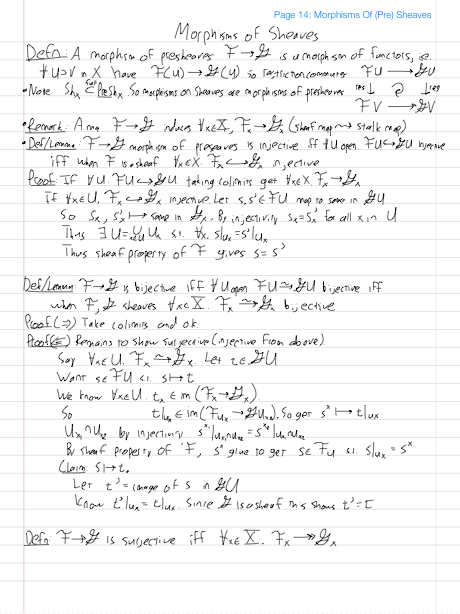 Page 14: Morphisms Of (Pre) Sheaves
Morphisms of Sheaves
Defn: A morphism of presheaves F → G is a morphism of functors, i.e.
∀ U ⊃ V in X have F(U) → G(U) so restriction commutes FU → GU
• Note Sh_X ⊂^full PreSh_X. So morphisms on sheaves are morphisms of presheaves res ↓ ↓ res
FV → GV
• Remark: A map F → G induces ∀x∈X, F_x → G_x (sheaf map ⇝ stalk map)
• Def/Lemma: F → G morphism of presheaves is injective iff ∀U open. FU ↪ GU injective
iff when F is a sheaf ∀x∈X. F_x ↪ G_x injective
Proof: If ∀U. FU ↪ GU taking colimits get ∀x∈X F_x → G_x
If ∀x∈U. F_x ↪ G_x injective Let s,s' ∈ FU map to same in GU
So s_x, s'_x ↦ same in G_x. By injectivity s_x = s'_x for all x in U
Thus ∃ U = ∪ U_x s.t. ∀x. s|_{U_x} = s'|_{U_x}
Thus sheaf property of F gives s = s'
Def/Lemma: F → G is bijective iff ∀U open FU ≃ GU bijective iff
when F, G sheaves ∀x∈X. F_x ≃ G_x bijective
Proof (⇒) Take colimits and ok
Proof (⇐) Remains to show surjective (injective from above)
Say ∀x∈U. F_x ≃ G_x. Let t∈GU
Want s∈FU s.t. s ↦ t
We know ∀x∈U. t_x ∈ im(F_x → G_x).
So t|_{U_x} ∈ im(F_{U_x} → G_{U_x}). So get s^x ↦ t|_{U_x}
U_{x_1} ∩ U_{x_2} by injectivity s^{x_1}|_{U_{x_1}∩U_{x_2}} = s^{x_2}|_{U_{x_1}∩U_{x_2}}
By sheaf property of F, s^x glue to get s∈FU s.t. s|_{U_x} = s^x
Claim: s ↦ t.
Let t' = image of s in GU
Know t'|_{U_x} = t|_{U_x}. Since G is a sheaf this shows t' = t
Defn: F → G is surjective iff ∀x∈X. F_x ↠ G_x